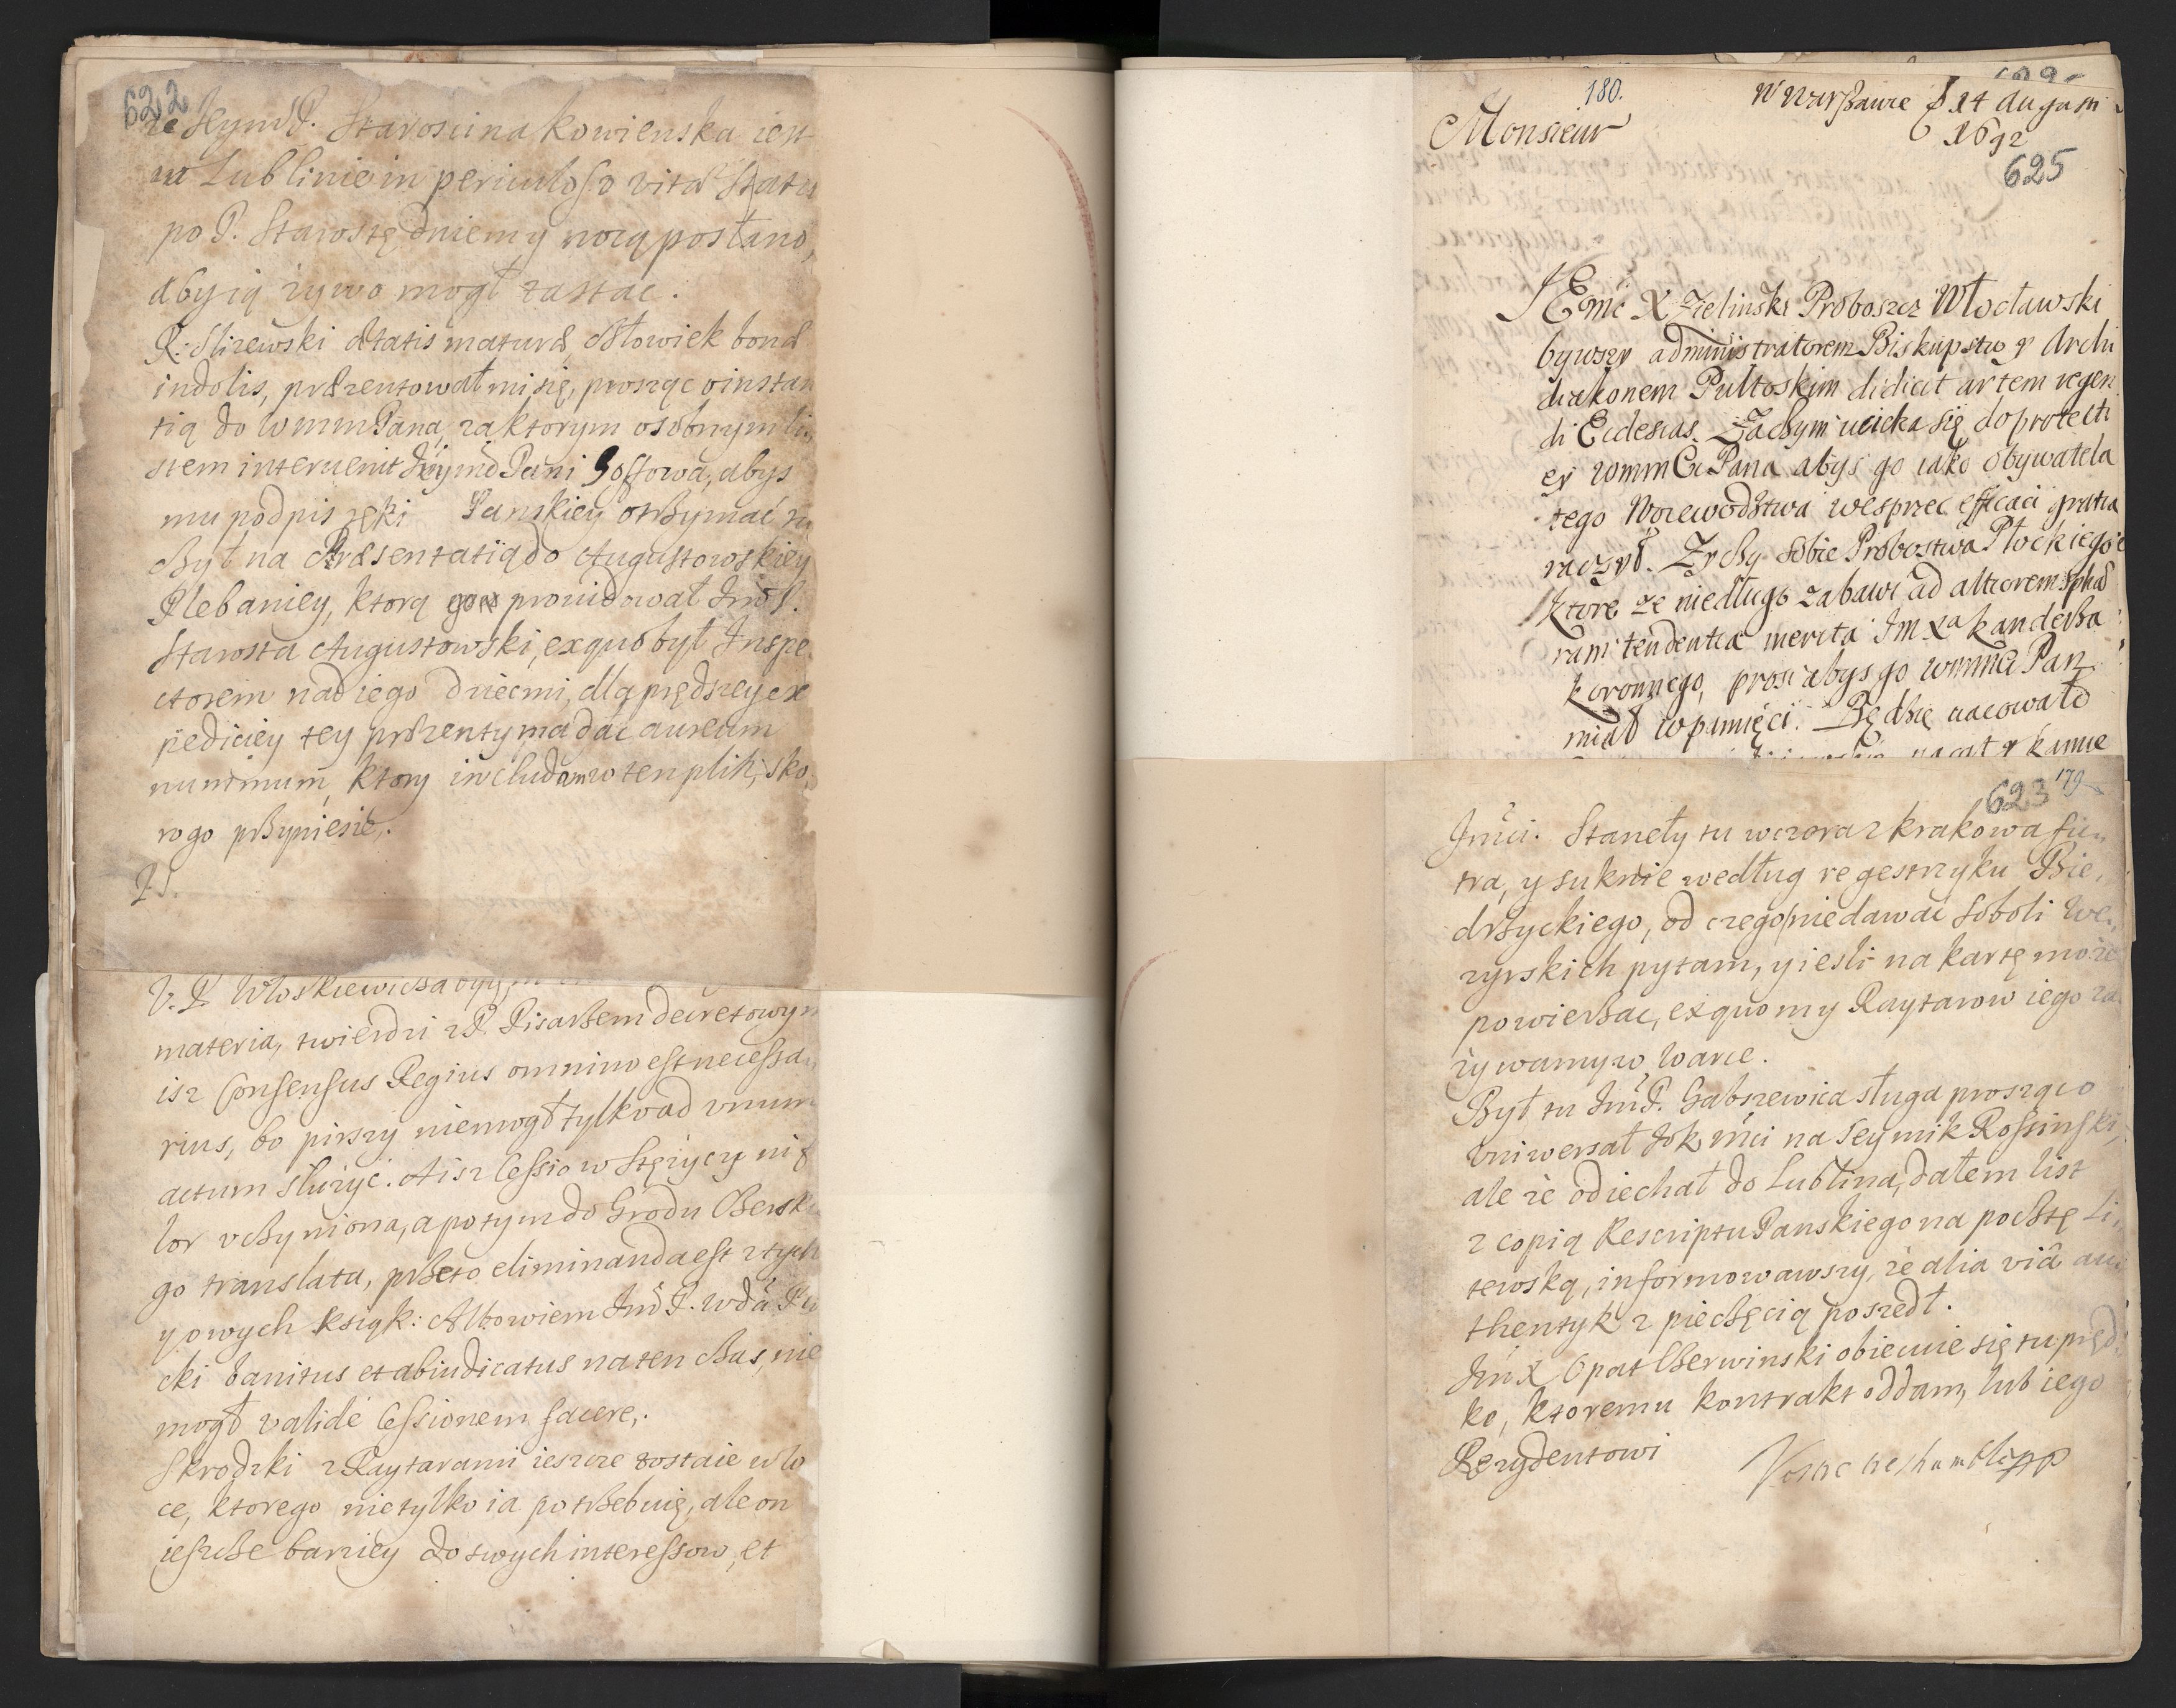 622
że Jeymć P. Starościna kowienska iest
w Lublinie in periculoso vitæ statu
po P. Starostę dniem y nocą posłano,
aby ią żywo mogł zastac.
P. Slizewski ætatis maturæ, człowiek bonæ
indolis, præzentował mi się, prosząc o instan
tią do WmmPana, za ktorym osobnym li
stem intervenit Jeymć Pani, abys
mu podpis ręki Panskiey otrzymać ra
czył na Præsentatią do Augustowskiey
Plebaniey, ktorą prowidował Jmć P.
Starosta Augustowski, ex quo był Inspe
ctorem nad iego dziecmi, dla prędszey ex
pediciey tey præzenty ma dac aureum
nummum, ktory includam w ten plik, sko
ro go przyniesie.
V. P. Włoskiewicza
materia, twierdzi z P. Pisarzem decretowym
isz Consensus Regius omnino est necessa
rius, bo pirszy niemogł tylko ad unum
actum słuzyc. A isz Cessio w Stęzycy nię
lor uczyniona, a potym do Grodu Czersk
go translata, przeto eliminanda est z tych
y owych ksiąk: Albowiem Jmć P. wda
cki banitus et abiudicatus na ten czas, nie
mogł validé Cessionem facere.
Skrodzki z Raytarami ieszcze zostaie w Wo
ce, ktorego nie tylko ia potrzebuię, ale on
ieszcze barziey do swych interessow, et
180.
W Warszawie d 14 Augusti
1692
Monsieur
625
JEmć X Zielinski Proboszcz Włocławski
bywszy administratorem Biskupstw y Archi
diakonem Pułtoskim didicit artem regen
di Ecclesias. Zaczym ucieka się do protecti
ey WmmCi Pana abyś go iako obywatela
tego Woiewodstwa wesprzec efficaci gratia
raczył. Zyczy sobie Probostwa Płockiego
ktore ze niedługo zabawi ad altiorem sphæ
ram tendentia merita Jm Xa kanclerza
koronnego, prosi abys go wmmci Pan
miał w pamięci. Będzie wacowało
623 179
Jmći. Stanęły tu wczora z krakowa fu
tra, y suknie według regestrzyku Bie,
drzyckiego, od czego niedawać soboli We,
zyrskich pytam, y iesli na kartę może
powierzac, ex quo my Raytarow iego za
żywamy w Warce.
Był tu Jmć P. Gabszewica sługa prosząc o
Vniwersał JoK mći na Seymik Rossinski,
ale że odiechał do Lublina, dałem list
z copią Rescriptu Panskiego na pocztę Li,
tewską, informowawszy, że alia viâ au
thentyk z pieczęcią poszedł.
Jmć X Opat Czerwinski obiecuie się tu pręd
ko, ktoremu kontrakt oddam, lub iego
Rezydentowi